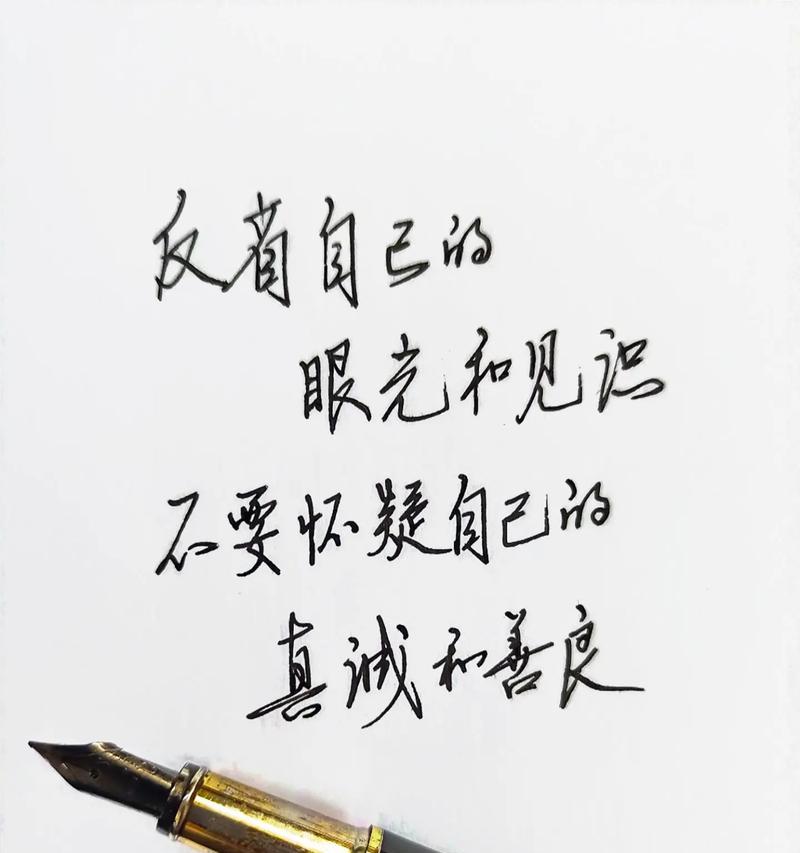 反省自己的
眼光和见识
不要怀疑自己的
真诚和善良